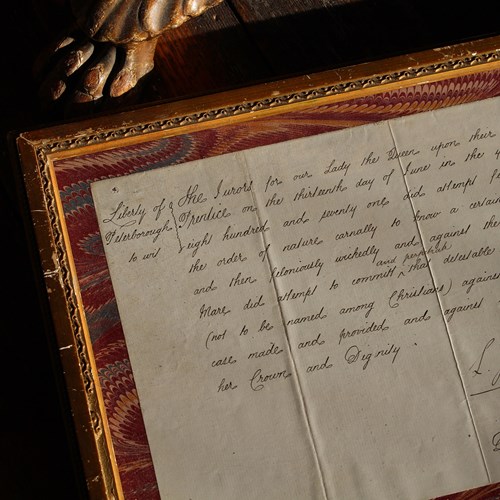 Liberty of
Peterborough
to wit
The Jurors for our Lady the Queen upon their
Prentice on the thirteenth day of June in the y
eigh hundred and seventy one did attempt
the order of nature carnally to know a certain
and then feloniously wickedly and against the
and perpetrate
Mare did attempt to committ ^ that detestable
(not to be named among Christians) agains
case made and provided and against
her Crown and Dignity.